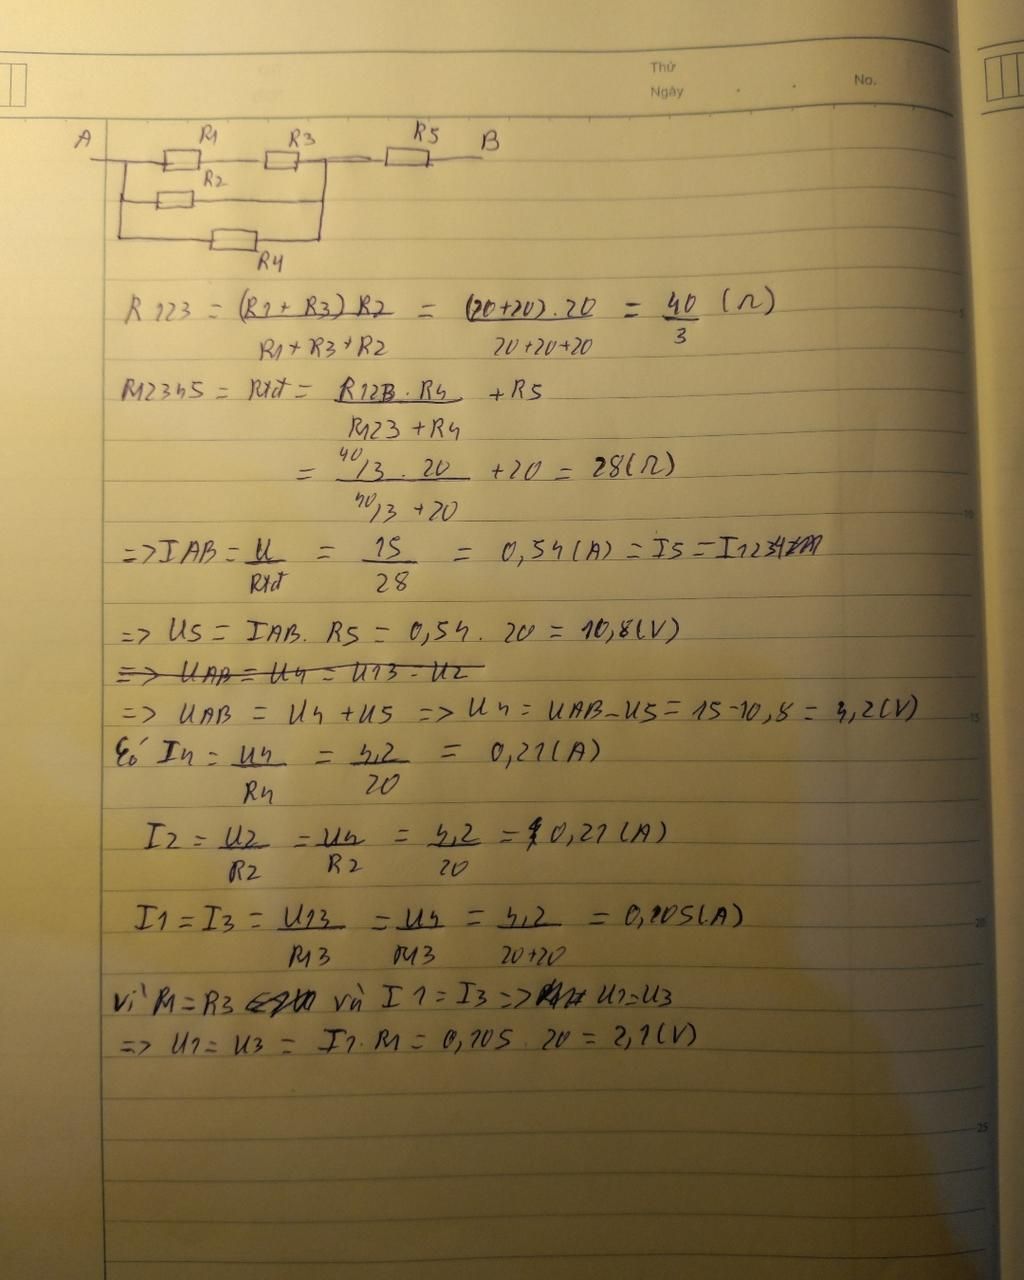 Thứ
Ngày
No.
A R1 R3 R5 B
R2
R4
R123 = (R1 + R3) R2 / R1 + R3 + R2 = (20+20).20 / 20+20+20 = 40/3 (Ω)
R12345 = Rtđ = R123 . R4 / R123 + R4 + R5
= 40/3 . 20 / 40/3 + 20 + 20 = 28(Ω)
=> IAB = U / Rtđ = 15 / 28 = 0,54(A) = I5 = I1234
=> U5 = IAB. R5 = 0,54. 20 = 10,8(V)
=> UAB = U4 = U13 = U2
=> UAB = U4 + U5 => U4 = UAB - U5 = 15-10,8 = 4,2(V)
Có I4 = U4 / R4 = 4,2 / 20 = 0,21(A)
I2 = U2 / R2 = U4 / R2 = 4,2 / 20 = 0,21(A)
I1 = I3 = U13 / R13 = U4 / R13 = 4,2 / 20+20 = 0,105(A)
Vì R1 = R3 và I1 = I3 => U1=U3
=> U1 = U3 = I1. R1 = 0,105 . 20 = 2,1(V)
5
10
15
20
25